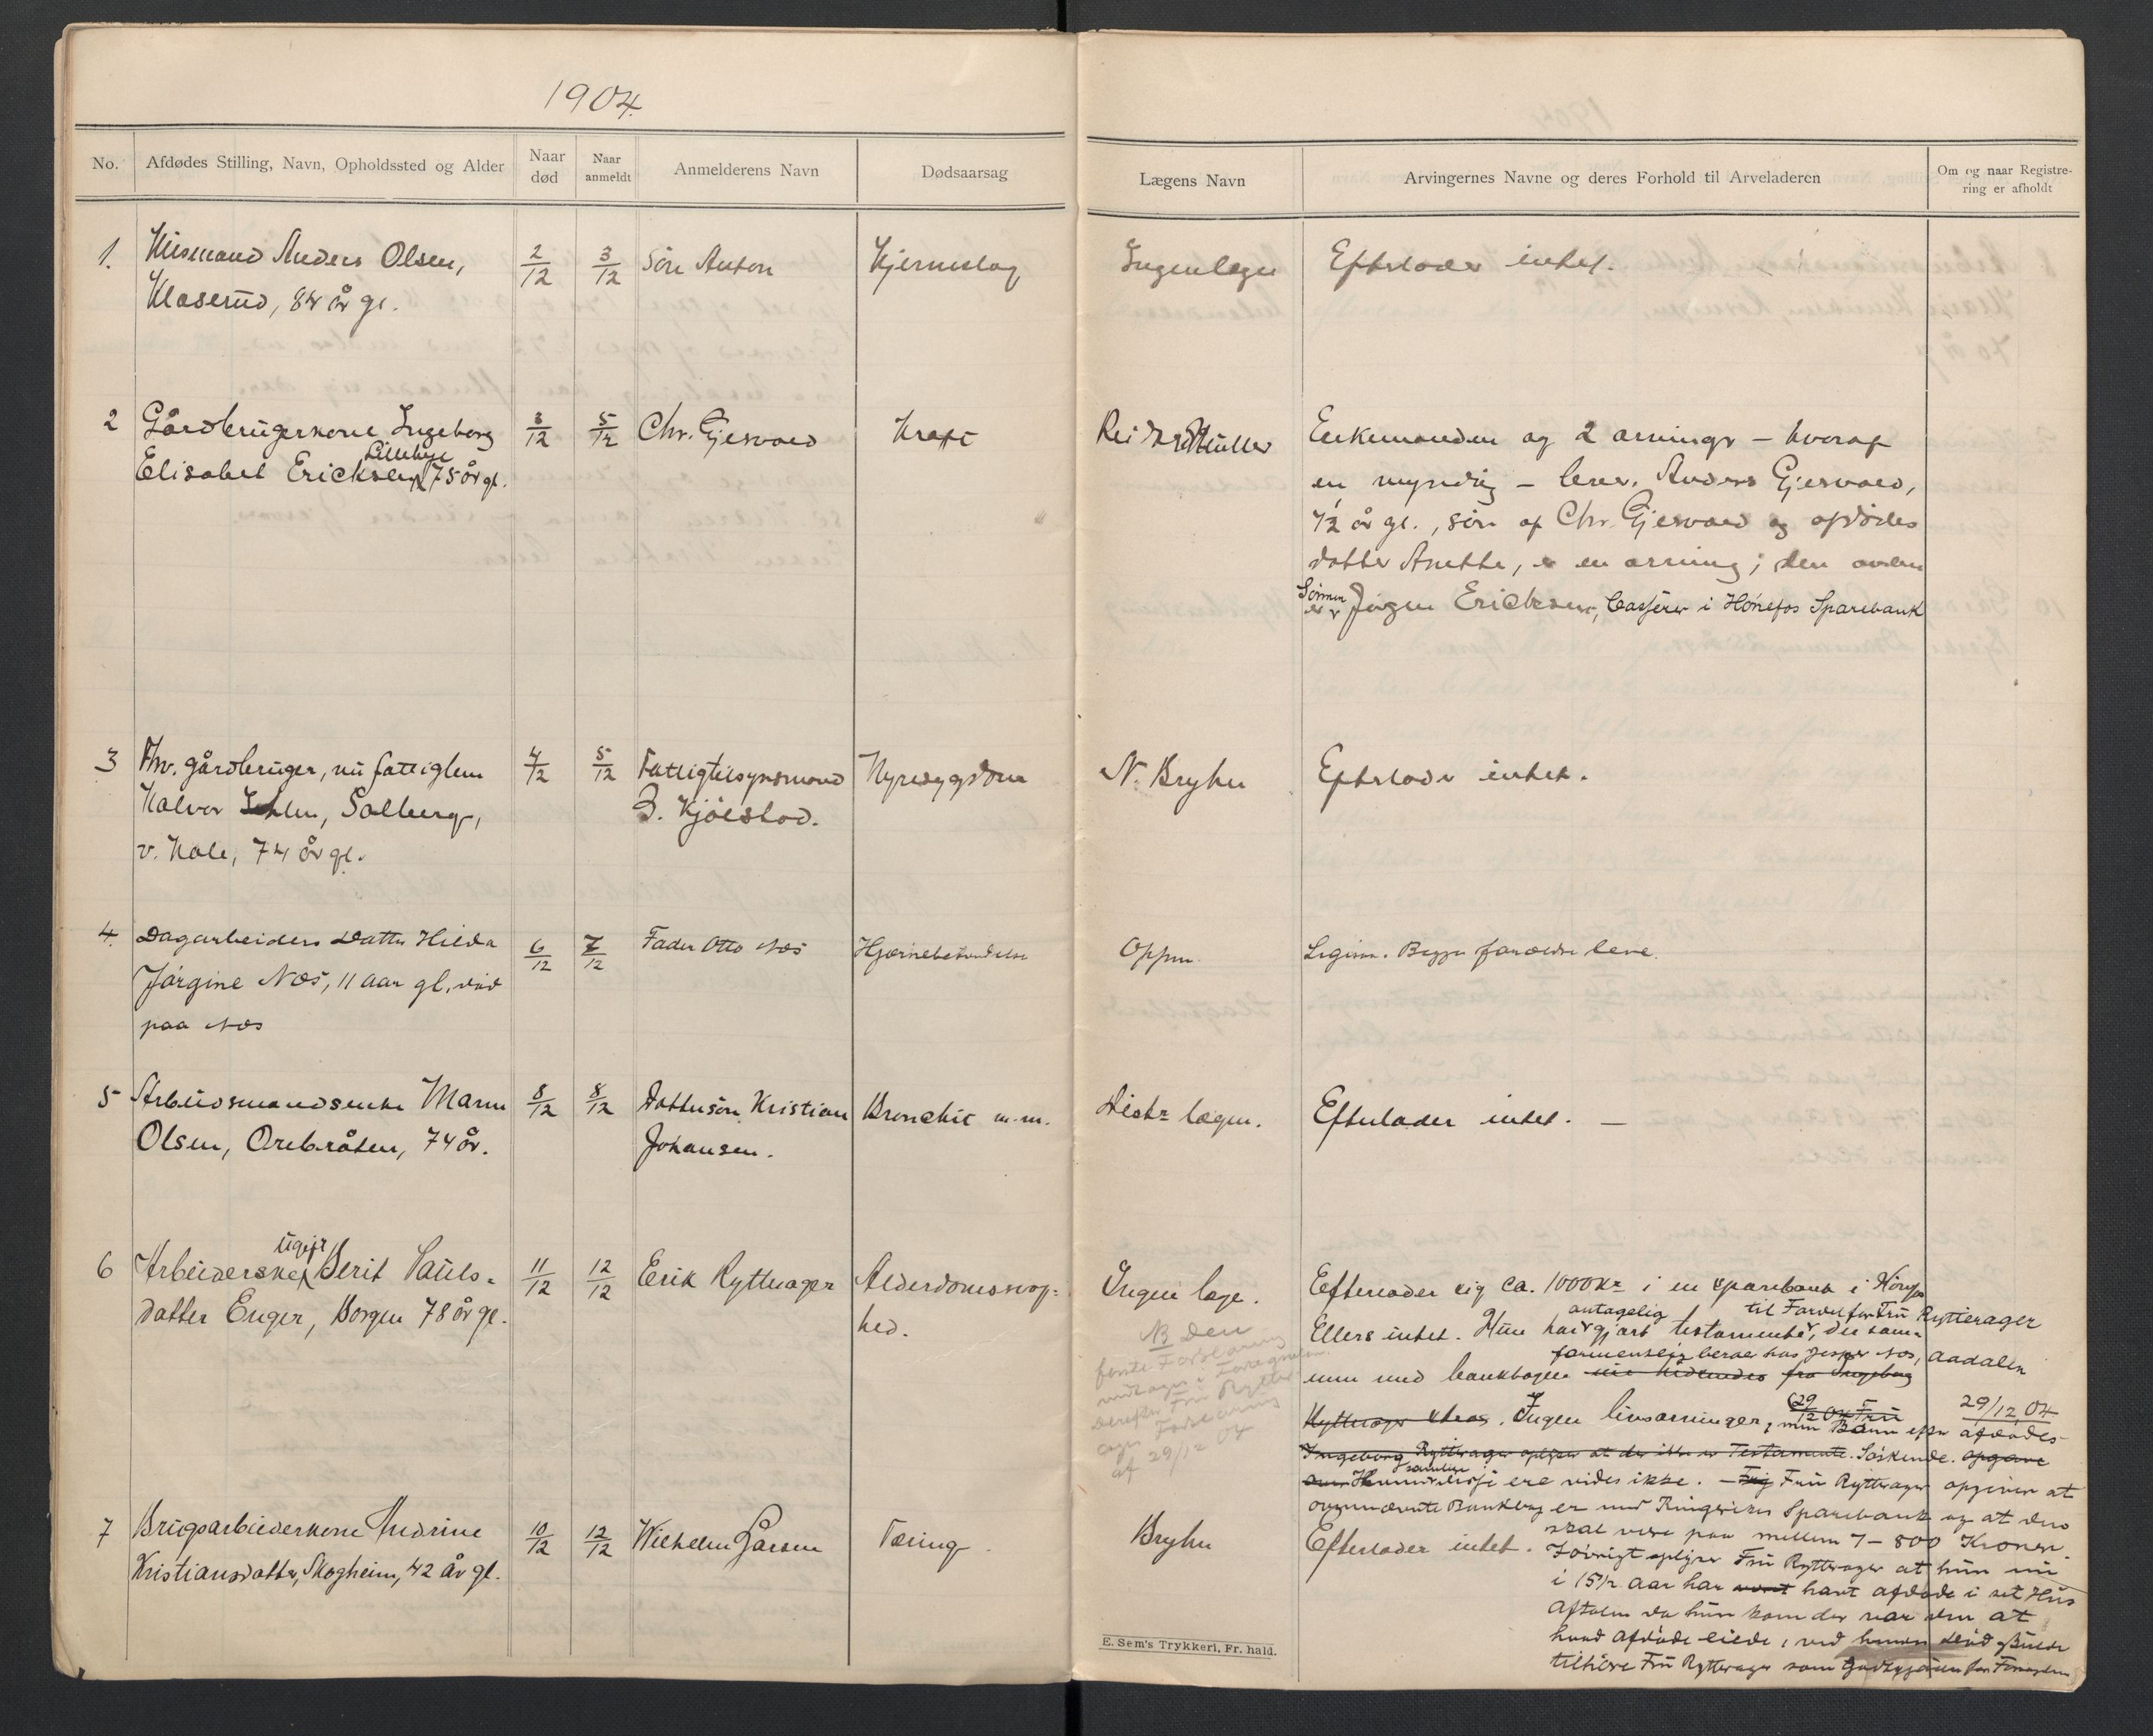 1904.
No. Afdødes Stilling, Navn, Opholdssted og Alder Naar død Naar anmeldt Anmelderens Navn Dødsaarsag Lægens Navn Arvingernes Navne og deres Forhold til Arveladeren Om og naar Registrering er afholdt
1. Husmand Anders Olsen, 2/12 3/12 Søn Anton Hjerneslag Ingen læge Efterlader intet.
Klaserud, 84 år gl.
2 Gårdbrugerkone Ingeborg 3/12 5/12 Chr. Gjesvold Kræft Müller Enkemanden og 2 arvinger – hvoraf
Lillehye
Elisabet Ericksen, 75 år gl. en myndig – lever. Anders Gjesvold,
7½ år gl., søn af Chr. Gjesvold og afdødes
datter Anette, er en arving; den anden
Sønnen
er Jørgen Ericksen, Casserer i Hönefos Sparebank
3 Fhv. gårdbruger, nu fattiglem 4/12 5/12 Fattigtilsynsmand Nyresygdom N. Bryhn Efterlader intet.
Halvor Solberg, B. Kjölstad.
v. Hole, 74 år gl.
4. Dagarbeiders Datter Hilda 6/12 7/12 Fader Otto Næs Hjernebetændelse Oppen. Begge forældre leve.
Jörgine Næs, 11 aar gl., död
paa Næs
5 Arbeidsmandsenke Maren 8/12 8/12 Dattersøn Kristian Bronchit m.m. Distr lægen. Efterlader intet. —
Olsen, Orebråten, 74 år. Johansen.
ugift
6 Arbeiderske Berit Pauls- 11/12 12/12 Erik Rytterager Alderdomssvag- Ingen læge. Efterlader sig ca. 1000 Kr i en sparebank i Hönefos
datter Enger, Borgen 78 år gl. hed.
antagelig til Fordel for Fru Rytterager
Ellers intet. Hun har gjort testamente, der sam-
formentlig beror hos Jesper Næs, Aadalen
men med bankbogen fra Ingeborg
NB Den
förste Forklaring
af 29/12 04
Rytterager. Ingen livsarvinger, men Børn efter afdødes 29/12 04
Ingeborg Rytterager oplyser at der ikke er Testamente. Söskende. opgave
ere vides ikke. – Fru Rytterager opgiver at
ovennævnte Bankbog er med Ringerikes Sparebank og at den
skal være paa mellem 7 – 800 Kroner.
7 Brugsarbeiderkone Andrine 10/12 12/12 Wilhelm Larsen Tæring. Bryhn Efterlader intet.
Kristiansdatter, Skogheim, 42 år gl.
Iövrigt oplyser Fru Rytterager at hun nu
i 15½ aar har havt afdöde i sit Hus
Aftalen da hun kom der var den at
hvad Afdöde eiede, ved hendes död skulde
tilhöre Fru Rytterager som Godtgjörelse for
E. Sem's Trykkeri, Fr.hald.